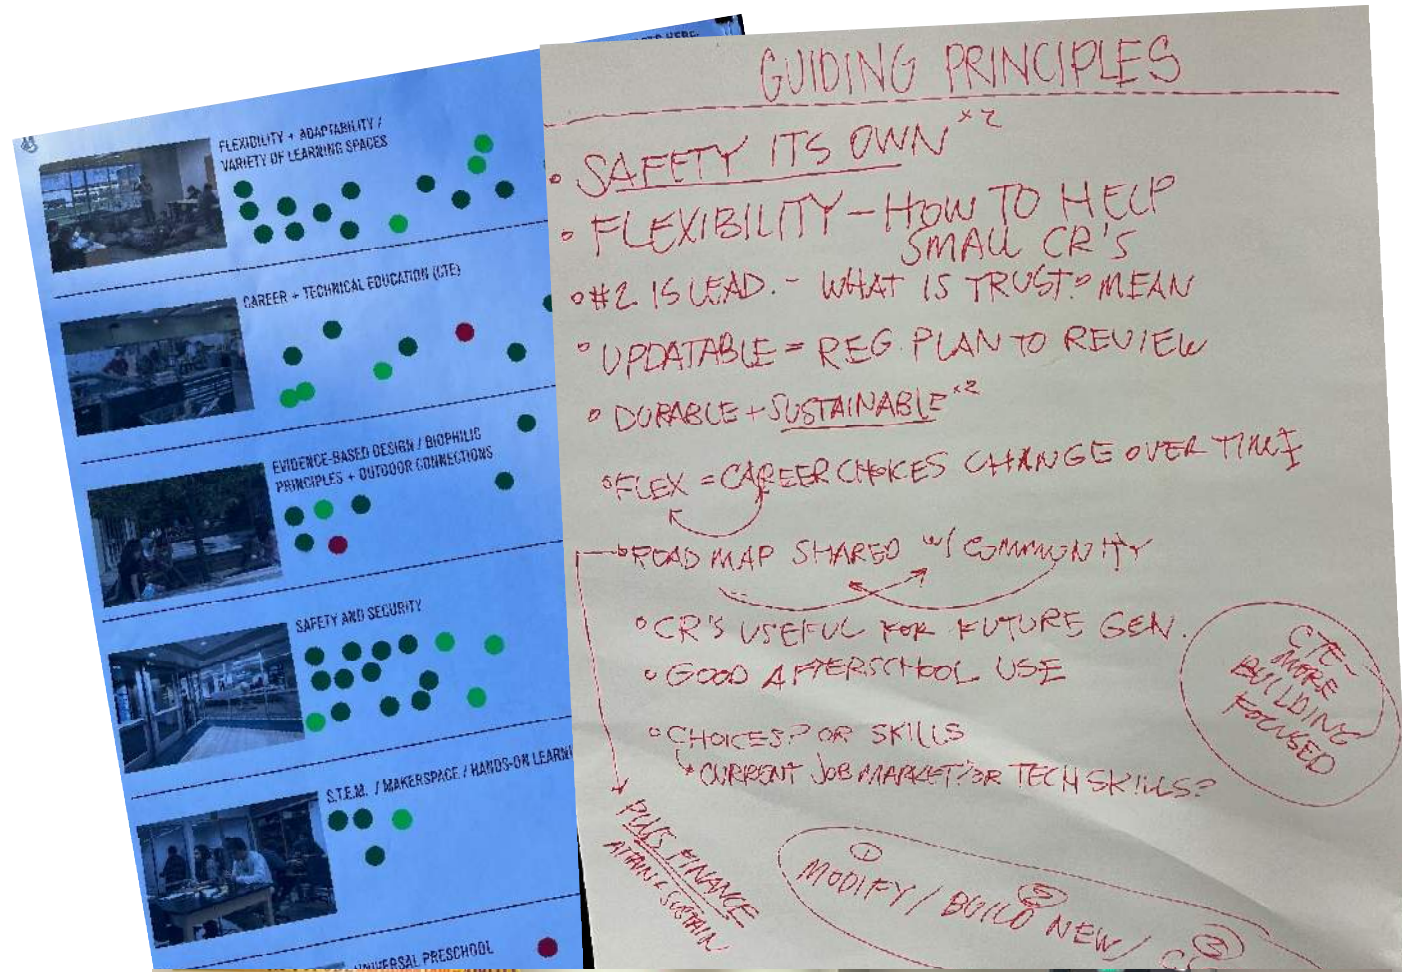 HERE.
FLEXIBILITY + ADAPTABILITY /
VARIETY OF LEARNING SPACES
CAREER + TECHNICAL EDUCATION (CTE)
EVIDENCE-BASED DESIGN / BIOPHILIC
PRINCIPLES + OUTDOOR CONNECTIONS
SAFETY AND SECURITY
S.T.E.M. / MAKERSPACE / HANDS-ON LEARNI
UNIVERSAL PRESCHOOL
GUIDING PRINCIPLES
SAFETY ITS OWN x2
FLEXIBILITY - HOW TO HELP
SMALL CR'S
#2 IS LEAD. - WHAT IS TRUST? MEAN
UPDATABLE = REG. PLAN TO REVIEW
DURABLE + SUSTAINABLE x2
FLEX = CAREER CHOICES CHANGE OVER TIME
ROAD MAP SHARED w/ COMMUNITY
CR'S USEFUL FOR FUTURE GEN.
GOOD AFTERSCHOOL USE
CHOICES? OR SKILLS
CURRENT JOB MARKET? OR TECH SKILLS?
CTE-
MORE
BUILDING
FOCUSED
PLUS FINANCE
ATTAIN & SUSTAIN
1 2 3
MODIFY / BUILD NEW /